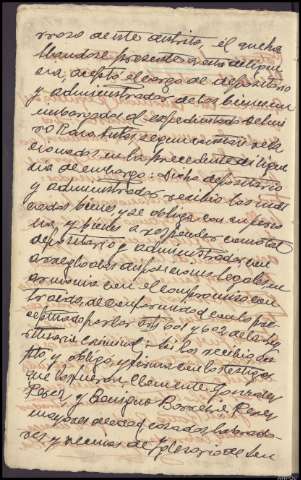 rroso de este distrito, el que ha
llandose presente a esta diligen
cia, aceptó el cargo de depositario
y administrador de los bienes
embargados al expedientado
que constan rela
cionados en la precedente diligen
cia de embargo: Dicho depositario
y administrador, recibió los indi
cados bienes y se obliga con su perso
na, y bienes a responder como tal
depositario y administrador con
arreglo a las disposiciones legales en
armonia con el compromiso con
traido, de conformidad con lo pre
ceptuado por los arts 601 y 602 de la Ley
Criminal: Asi los recibió de
po y obligó y firma con los testigos
que lo fueron, Clemente Gonzalez
Perez, y Benigno Perez
mayores de edad, casados labrado
res, y vecinos de de San